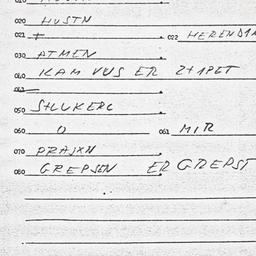 020 HUSTN
021 + 022 HERENDIN
030 ATMEN
040 KAM VUS ER 2+1PET
050 S+LUKERC
060 O 061 MIR
070 PRAJXN
080 GREPSEN ER GREPST